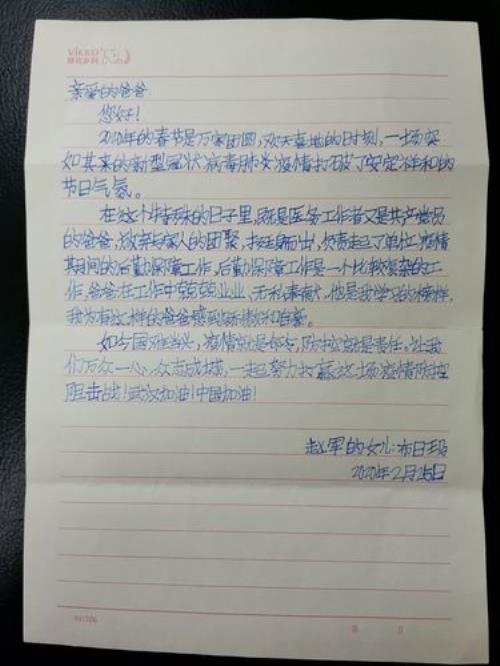 VIKKO
亲爱的爸爸:
您好!
2020年的春节是万家团圆,欢天喜地的时刻,一场突
如其来的新型冠状病毒肺炎疫情打破了安定祥和的
节日气氛。
在这个特殊的日子里,既是医务工作者又是共产党员
的爸爸,放弃与家人的团聚,挺身而出,负责起了单位疫情
期间的后勤保障工作,后勤保障工作是一个比较复杂的工
作,爸爸在工作中兢兢业业,无私奉献,他是我学习的榜样,
我为有这样的爸爸感到骄傲和自豪。
如今国难当头,疫情就是命令,防控就是责任,让我
们万众一心,众志成城,一起努力打赢这场疫情防控
阻击战!武汉加油!中国加油!
赵军的女儿:布日
2020年2月25日